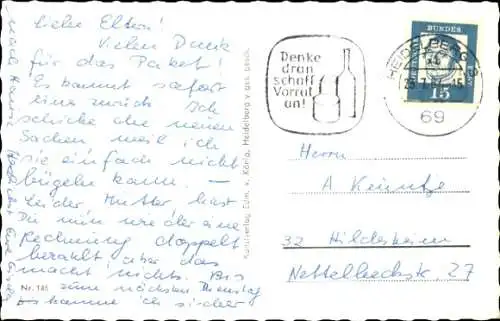 Liebe Eltern!
Vielen Dank
für das Paket!
Es kommt sofort
eine zurück. Ich
schicke die neuen
Sachen weil ich
sie einfach nicht
bügeln kann. —
Leider, Mutter, hast
Du mir wieder eine
Rechnung doppelt
bezahlt aber das
macht nichts. Bis
zum nächsten Dienstag
komme ich sicher
Nr. 145
Kunstverlag Edm. v. König, Heidelberg
Denke
dran
schaff
Vorrat
an!
HEIDELBERG
69
BUNDES
15
Herrn
A Keintze
32 Hildesheim
Nettelbeckstr. 27